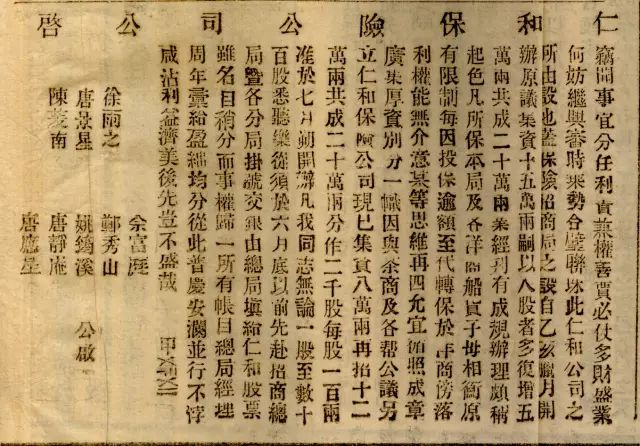 仁和保險公司公啓
竊聞事宜分任利貴兼權善賈必仗多財盛業
何妨繼興審時乘勢合璧聯珠此仁和公司之
所由設也蓋保險招商局之設自乙亥臘月開
辦原議集資十五萬兩嗣以入股者多復增五
萬兩共成二十萬兩業經刋有成規辦理頗稱
起色凡所保本局及各洋商船貨子母相衡原
有限制每因投保逾額至代轉保於洋商傍落
利權能無介意某等思維再四允宜循照成章
廣集厚資別分一幟因與茶商及各帮公議另
立仁和保險公司現已集資八萬兩再招十二
萬兩共成二十萬兩分作二千股每股一百兩
准於七月朔開辦凡我同志無論一股至數十
百股悉聽樂從須於六月底以前先赴招商總
局暨各分局掛號交銀由總局塡給仁和股票
雖名目稍分而事權歸一所有帳目總局經理
周年彙給盈絀均分從此普慶安瀾並行不悖
咸沾利益濟美後先豈不盛哉
余富庭
徐雨之 鄭秀山
唐景星 姚溪 公啟
陳南 唐靜庵
唐應星